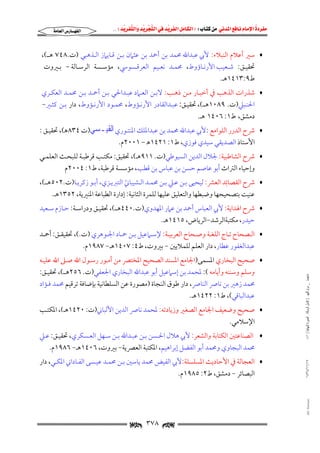 مفردة الإمام نافع المدني من كتاب: «الكامل الفريد في التجريد والتفريد»
الفهارس العامة
• سير أعلام النبلاء: لأبي عبدالله محمد بن أحمد بن عثمان بن قايماز الذهبي (ت.٧٤٨هـ)،
تحقيق: شعيب الأرناؤوط، محمد نعيم العرقسوسي، مؤسسة الرسالة- بيروت
ط٩: ١٤١٣هـ.
• شذرات الذهب في أخبار من ذهب: لابن العماد عبدالحي بن أحمد بن محمد العكري
الحنبلي (ت. ١٠٨٩هـ)، تحقيق: عبدالقادر الأرنؤوط، محمود الأرناؤوط، دار بن كثير-
دمشق، ط١: ١٤٠٦ هـ.
• شرح الدرر اللوامع: لأبي عبدالله محمد بن عبدالملك المنتوري القيسي (ت ٨٣٤هـ)، تحقيق:
الأستاذ الصديقي سيدي فوزي، ط١: ١٤٢١هـ - ٢٠٠١م.
• شرح الشاطبية: جلال الدين السيوطي (ت. ٩١١هـ)، تحقيق: مكتب قرطبة للبحث العلمي
وإحياء التراث أبو عاصم حسن بن عباس بن قطب، مؤسسة قرطبة، ط١: ٢٠٠٤م
• شرح القصائد العشر: ليحيى بن علي بن محمد الشيباني التبريزي، أبو زكريا (ت. ٥٠٢هـ)،
عنيت بتصحيحها وضبطها والتعليق عليها للمرة الثانية: إدارة الطباعة المنيرية، ١٣٥٢هـ.
• شرح الهداية: لأبي العباس أحمد بن عمار المهدوي (ت. ٤٤٠هـ)، تحقيق ودراسة: حازم سعيد
حيدر، مكتبة الرشد-الرياض، ١٤١٥هـ.
• الصحاح تاج اللغة وصحاح العربية: لإسماعيل بن حماد الجوهري (ت.)، تحقيق: أحمد
عبدالغفور عطار، دار العلم للملايين – بيروت، ط٤: ١٤٠٧ هـ- ١٩٨٧م.
• صحيح البخاري المسمى (الجامع المسند الصحيح المختصر من أمور رسول الله صلى الله عليه
وسلم وسننه وأيامه ): لمحمد بن إسماعيل أبو عبدالله البخاري الجعفي (ت. ٢٥٦هـ)، تحقيق:
محمد زهير بن ناصر الناصر، دار طوق النجاة (مصورة عن السلطانية بإضافة ترقيم محمد فؤاد
عبدالباقي)، ط١: ١٤٢٢هـ.
• صحيح وضعيف الجامع الصغير وزيادته: لمحمد ناصر الدين الألباني (ت: ١٤٢٠هـ)، المكتب
الإسلامي.
• الصناعتين الكتابة والشعر: لأبي هلال الحسن بن عبدالله بن سهل العسكري، تحقيق: علي
محمد البجاوي ومحمد أبو الفضل إبراهيم، المكتبة العصرية- بيروت، ١٤٠٦هـ- ١٩٨٦م.
• العجالة في الأحاديث المسلسلة: لأبي الفيض محمد ياسين بن محمد عيسى الفاداني المكي، دار
البصائر - دمشق، ط٢: ١٩٨٥م.
٣٧٨